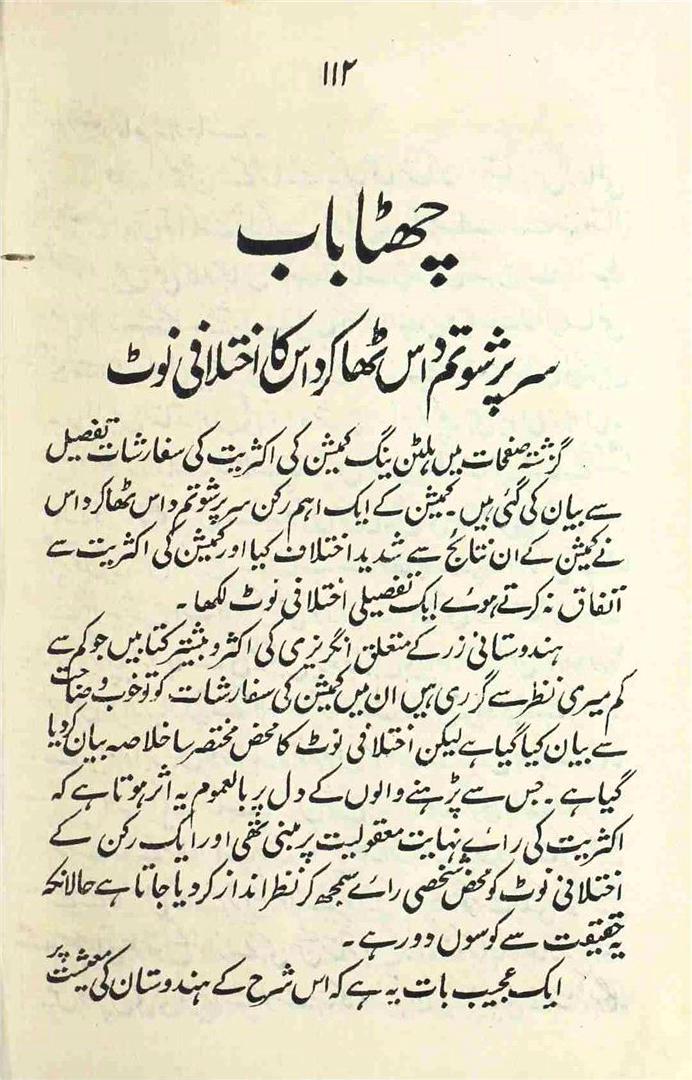 ۱۱۲
چھٹا باب
سر پرشوتم داس ٹھاکر داس کا اختلافی نوٹ
گزشتہ صفحات میں ہلٹن ینگ کمیشن کی اکثریت کی سفارشات تفصیل
سے بیان کی گئی ہیں۔ کمیشن کے ایک اہم رکن سر پرشوتم داس ٹھاکر داس
نے کمیشن کے ان نتائج سے شدید اختلاف کیا اور کمیشن کی اکثریت سے
اتفاق نہ کرتے ہوئے ایک تفصیلی اختلافی نوٹ لکھا۔
ہندوستانی زر کے متعلق انگریزی کی اکثر و بیشتر کتابیں جو کم سے
کم میری نظر سے گزری ہیں ان میں کمیشن کی سفارشات کو تو خوب وضاحت
سے بیان کیا گیا ہے لیکن اختلافی نوٹ کا محض مختصر سا خلاصہ بیان کر دیا
گیا ہے۔ جس سے پڑہنے والوں کے دل پر بالعموم یہ اثر ہوتا ہے کہ
اکثریت کی رائے نہایت معقولیت پر مبنی تھی اور ایک رکن کے
اختلافی نوٹ کو محض شخصی رائے سمجھ کر نظر انداز کر دیا جاتا ہے حالانکہ
یہ حقیقت سے کوسوں دور ہے۔
ایک عجیب بات یہ ہے کہ اس شرح کے ہندوستان کی معیشت پر